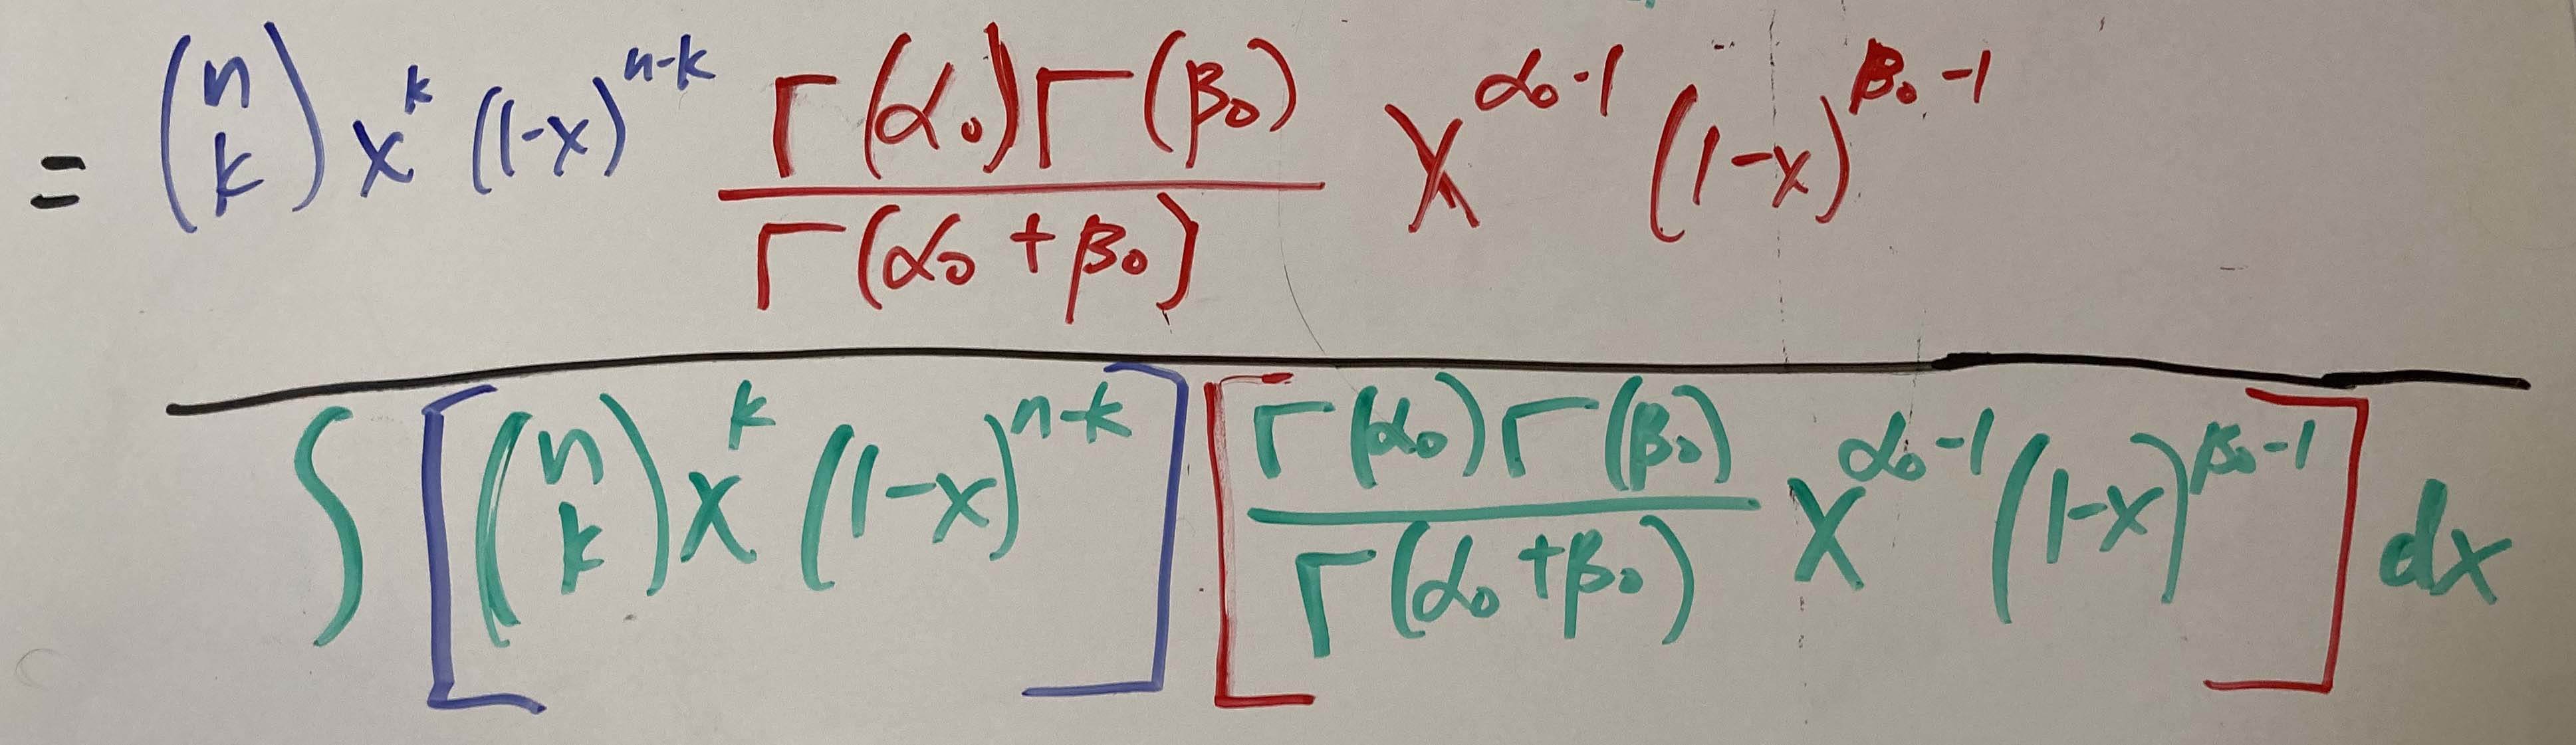 = \frac{\binom{n}{k} x^{k} (1-x)^{n-k} \frac{\Gamma(\alpha_0)\Gamma(\beta_0)}{\Gamma(\alpha_0+\beta_0)} x^{\alpha_0-1} (1-x)^{\beta_0-1}}{\int \left[\binom{n}{k} x^{k} (1-x)^{n-k}\right] \left[\frac{\Gamma(\alpha_0)\Gamma(\beta_0)}{\Gamma(\alpha_0+\beta_0)} x^{\alpha_0-1} (1-x)^{\beta_0-1}\right] dx}